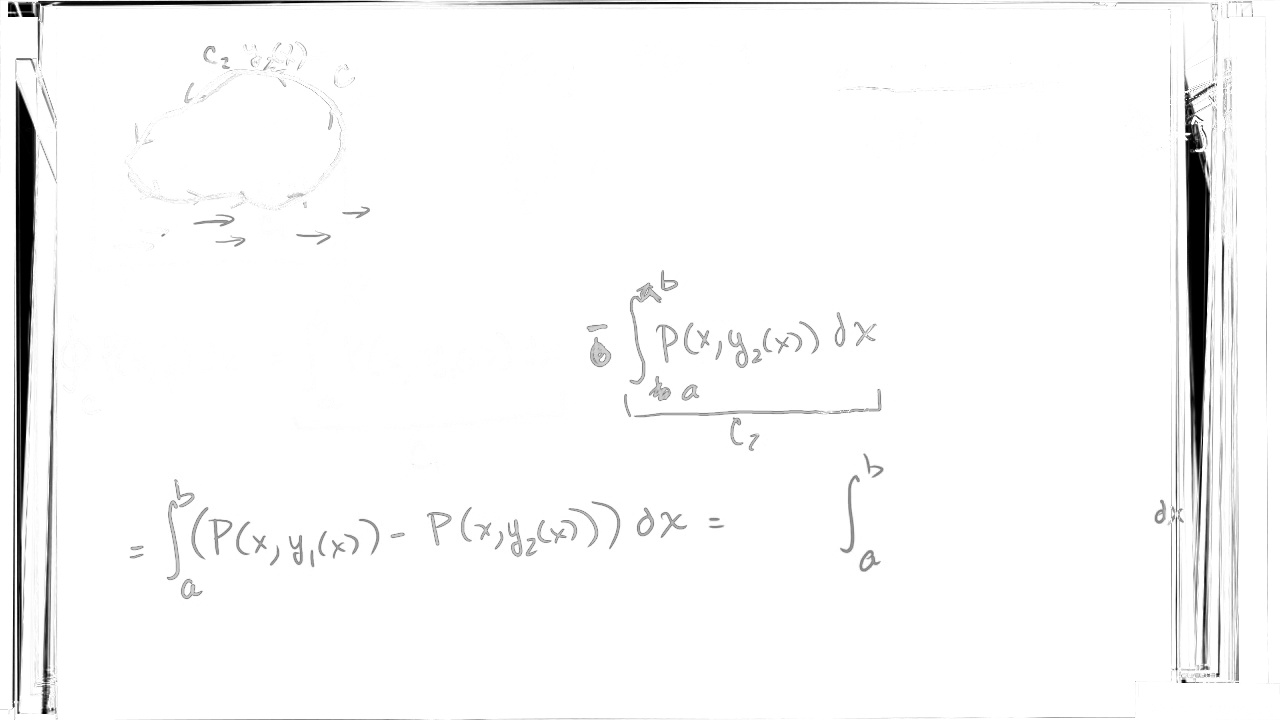 C₂ y₂(x) C
- ∫_a^b P(x, y₂(x)) dx
C₂
= ∫_a^b (P(x, y₁(x)) - P(x, y₂(x))) dx = ∫_a^b dx